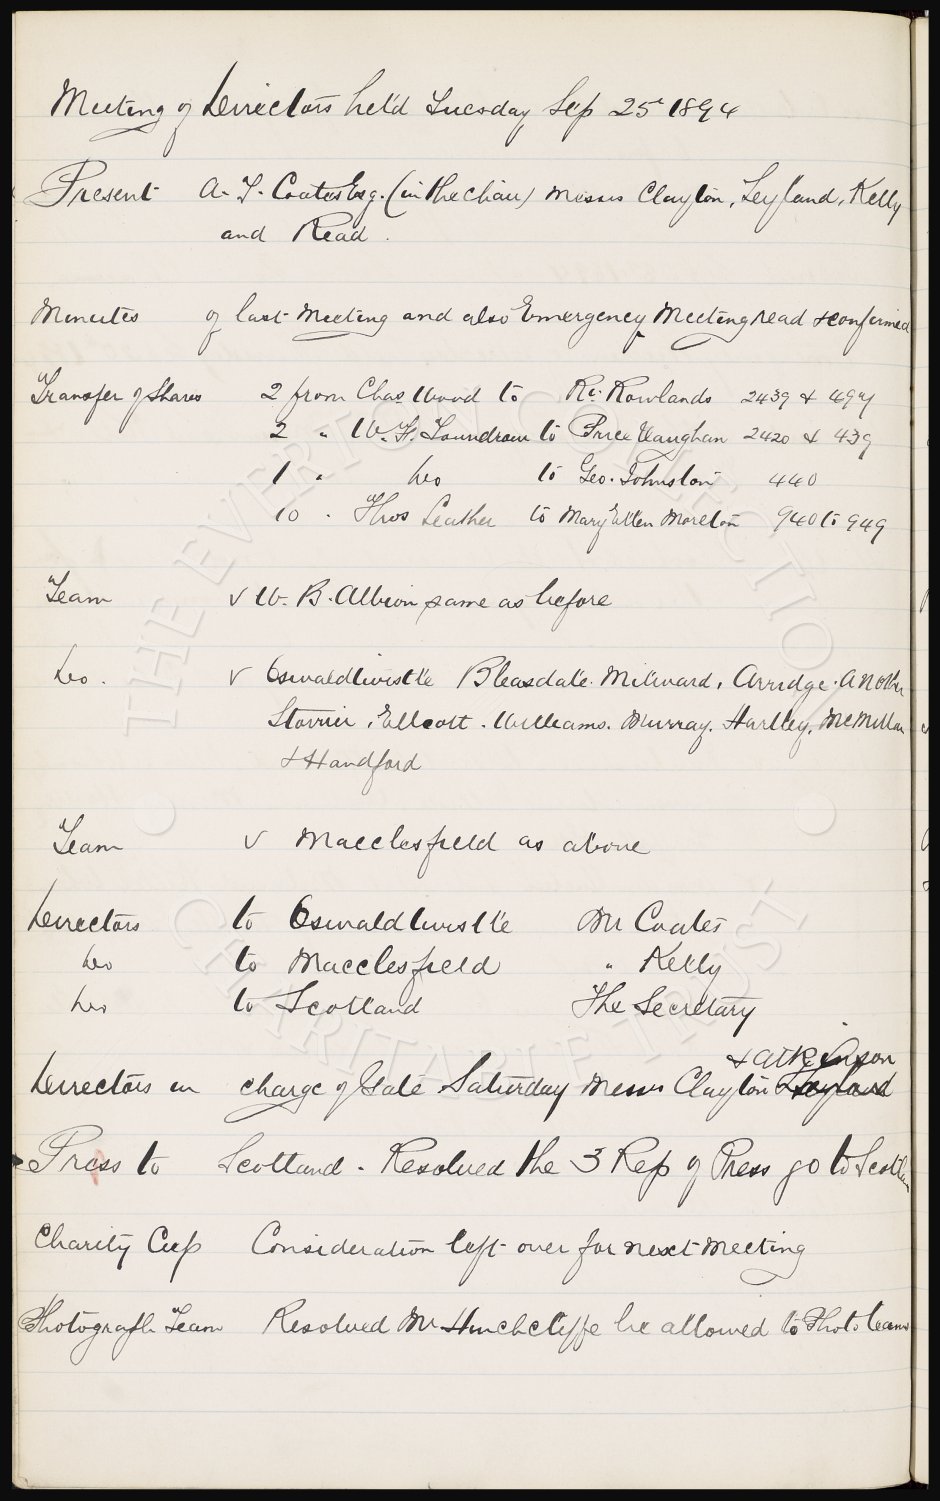 Meeting of Directors held Tuesday Sep 25 1894
Present A. T. Coates Esq. (in the chair) Messrs Clayton, Leyland, Kelly
and Read.
Minutes of last Meeting and also Emergency Meeting read & confirmed
Transfer of Shares 2 from Chas Wood to Rd. Rowlands 2439 &
2 " W. F. to Price Vaughan 2420 & 439
1 " Do to Geo. Johnston 440
10 " Thos Leather to Mary Ellen Moreton 940 to 949
Team v W. B. Albion same as before
Do. v Oswaldtwistle Bleasdale. Milward, Arridge. Another
Storrier, Elleott. Williams. Murray. Hartley, McMillan
& Handford
Team v Macclesfield as above
Directors to Oswaldtwistle Mr Coates
Do to Macclesfield " Kelly
Do to Scotland The Secretary
& Atkinson
Directors in charge of Gate Saturday Messrs Clayton Leyland
Press to Scotland - Resolved the 3 Rep of Press go to Scotland
Charity Cup Consideration left over for next Meeting
Photograph Team Resolved Mr Hinchcliffe be allowed to Photo team
THE EVERTON COLLECTION
CHARITABLE TRUST